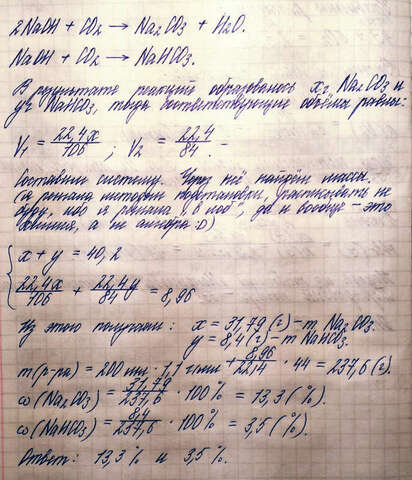 2NaOH + CO2 → Na2CO3 + H2O.
NaOH + CO2 → NaHCO3.
В результате реакций образовалось x г Na2CO3 и
y г NaHCO3, тогда соответствующие объёмы равны:
V1 = 22,4x/106 ; V2 = 22,4/84 . –
Составим систему. Через неё найдём массы.
(я решала методом подстановки, расписывать не
буду, ибо я решала "в лоб", да и вообще – это
химия, а не алгебра :D)
x + y = 40,2
22,4x/106 + 22,4y/84 = 8,96
Из этого получаем: x = 31,79 (г) – m Na2CO3.
y = 8,4 (г) – m NaHCO3.
m(р-ра) = 200 мл · 1,1 г/мл + 8,96/22,4 · 44 = 237,6 (г).
ω(Na2CO3) = 31,79/237,6 · 100% = 13,3 (%).
ω(NaHCO3) = 8,4/237,6 · 100% = 3,5 (%).
Ответ: 13,3 % и 3,5 %.